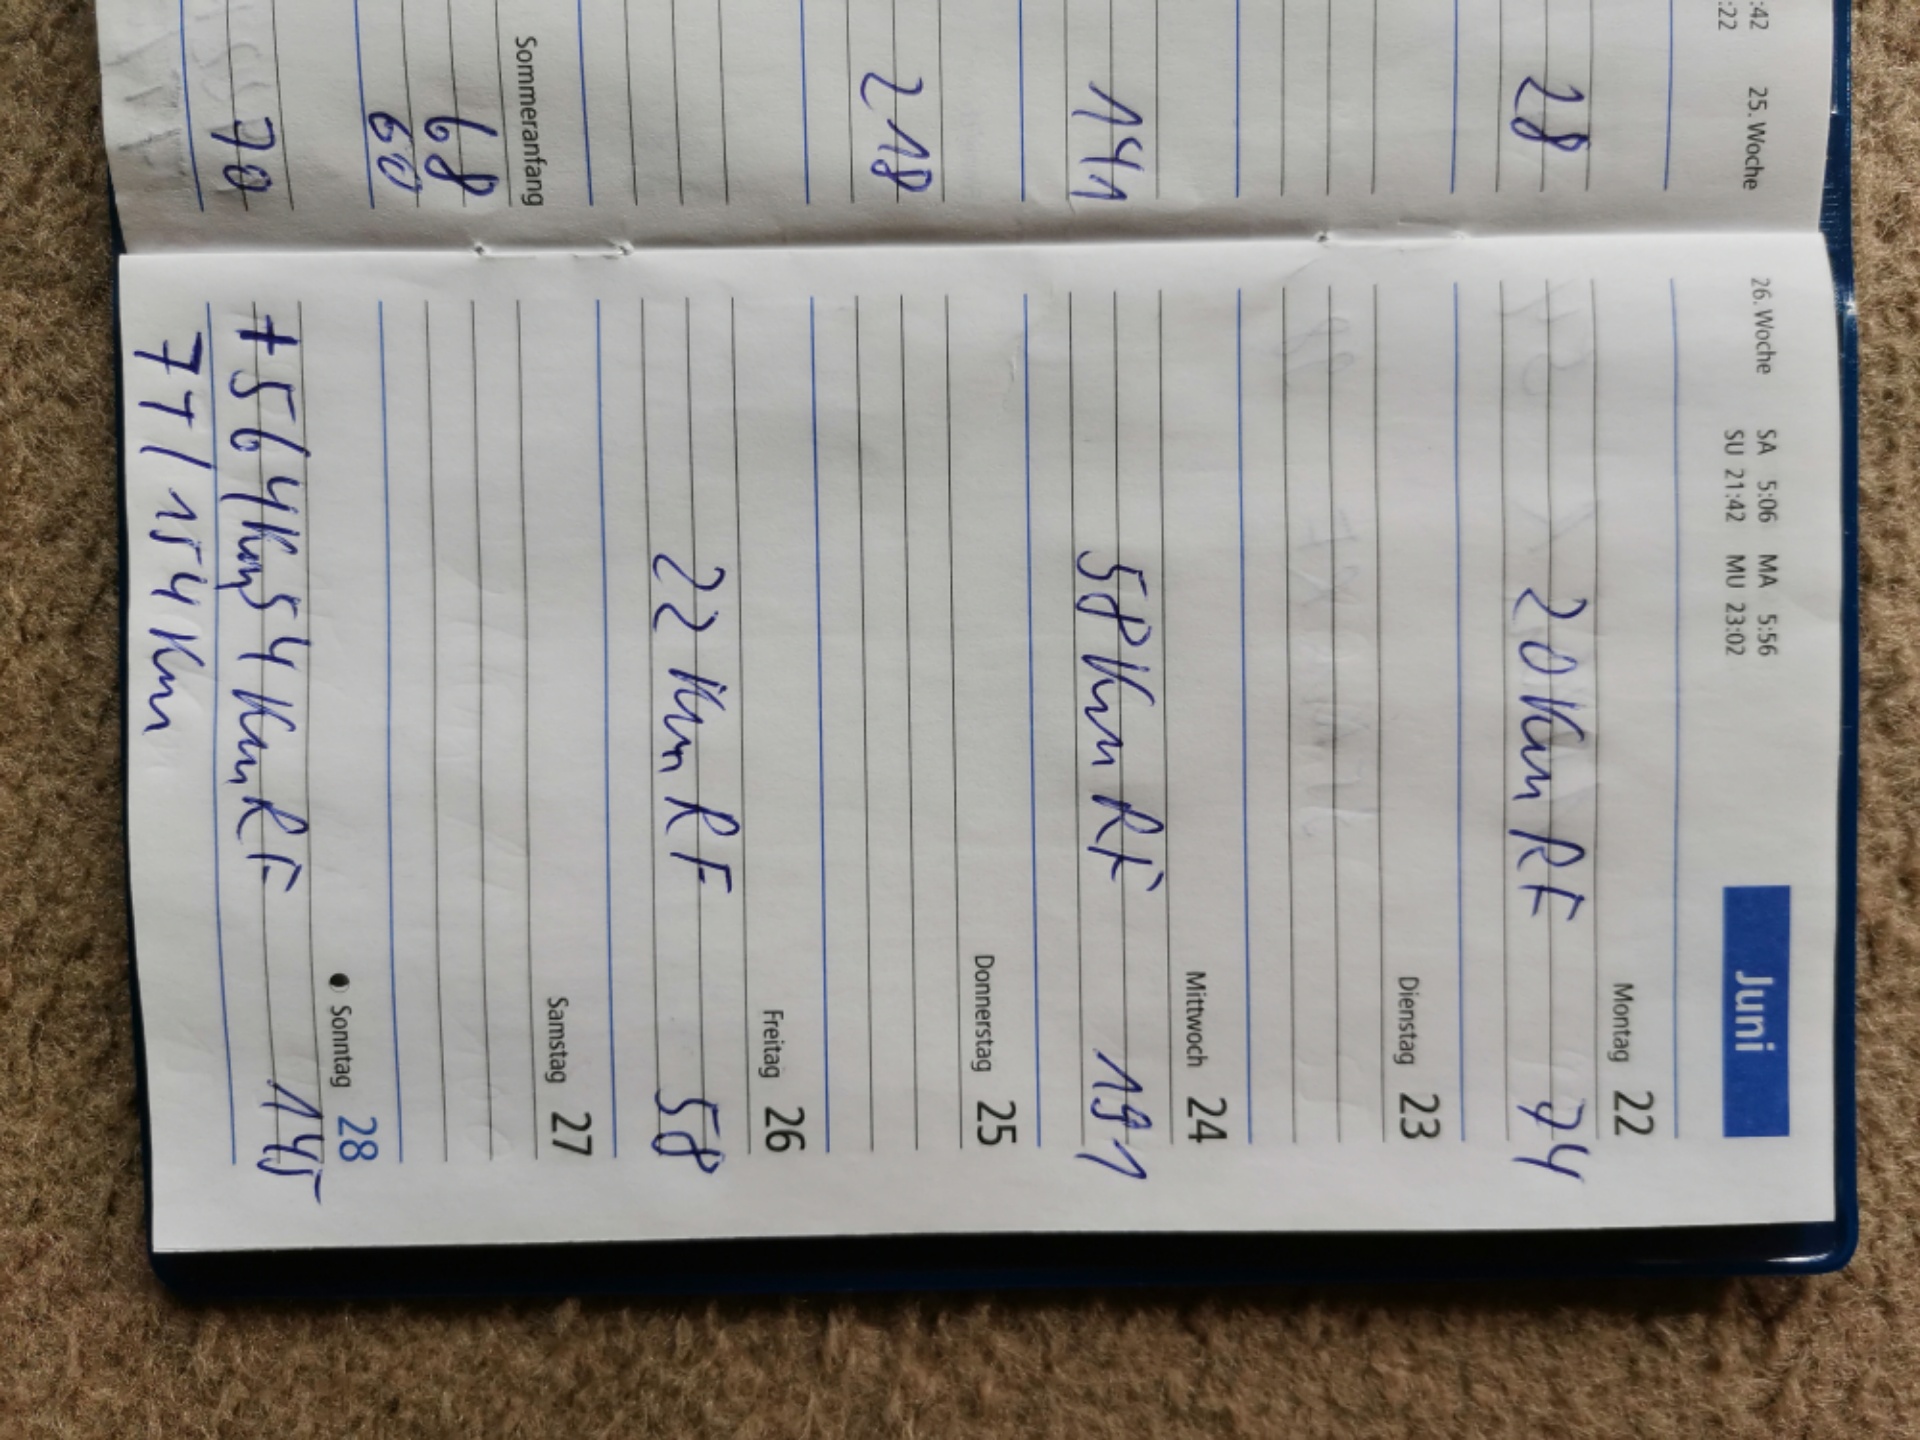 :42 25. Woche
:22
28
141
218
Sommeranfang
68
60
70
26. Woche SA 5:06 MA 5:56
SU 21:42 MU 23:02
Juni
Montag 22
20 Km RF 74
Dienstag 23
Mittwoch 24
58 Km RF 191
Donnerstag 25
Freitag 26
22 Km RF 58
Samstag 27
Sonntag 28
+564Km 54 Km RF 145
77/154 Km